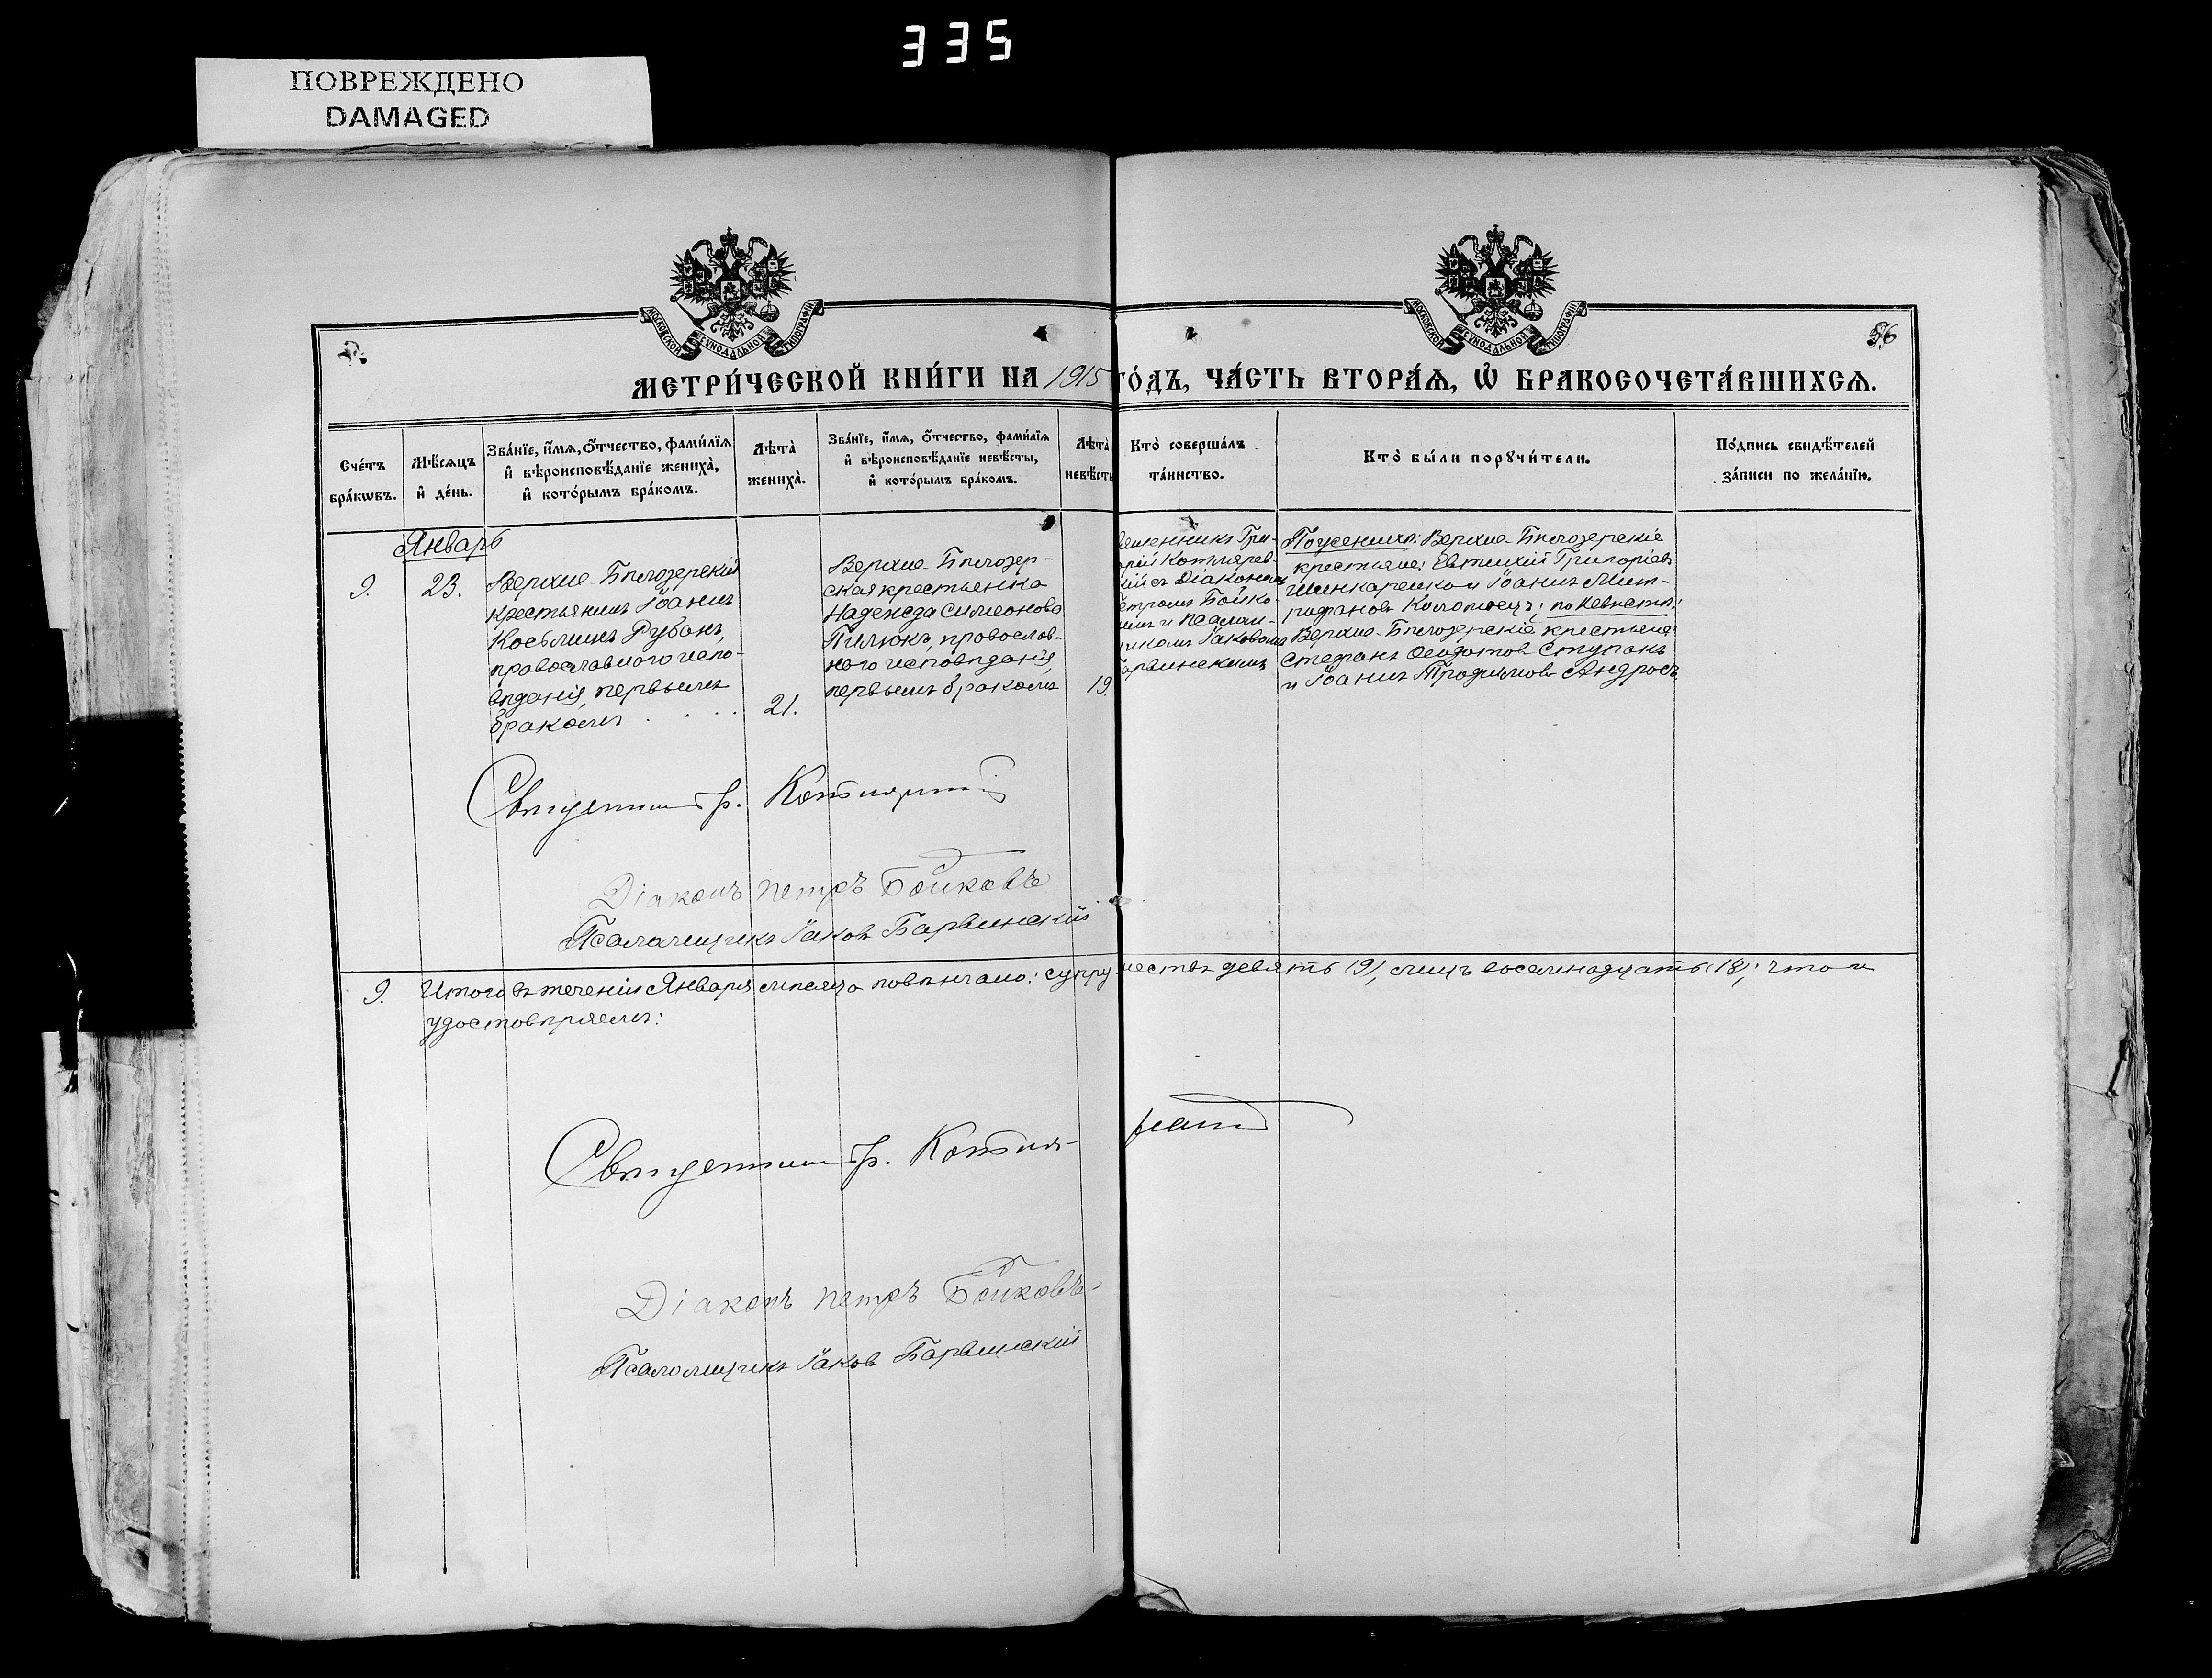 335
ПОВРЕЖДЕНО
DAMAGED
МОСКОВСКОЙ СѴНОДАЛЬНОЙ ТИПОГРАФІИ
МОСКОВСКОЙ СѴНОДАЛЬНОЙ ТИПОГРАФІИ
56
МЕТРИ́ЧЕСКОЙ КНИ́ГИ НА 1915 ГО́ДЪ, ЧА́СТЬ ВТОРА́Я, Ѡ҆ БРАКОСОЧЕТА́ВШИХСЯ.
Сче́тъ
бра́кѡвъ.
Мѣ́сяцъ
и҆ де́нь.
Зва́нїе, и҆́мя, ѻ҆́тчество, фами́лїя
и҆ вѣроисповѣ́данїе жениха̀,
и҆ кото́рымъ бра́комъ.
Лѣта̀
жениха̀.
Зва́нїе, и҆́мя, ѻ҆́тчество, фами́лїя
и҆ вѣроисповѣ́данїе невѣ́сты,
и҆ кото́рымъ бра́комъ.
Лѣта̀
невѣ́сты
Кто̀ соверша́лъ
та́инство.
Кто̀ бы́ли порꙋчи́тели.
По́дпись свидѣ́телей
за́писи по жела́нїю.
Январь
9.
23.
Верхне-Бѣлозерскій
крестьянинъ Іоаннъ
Косьминъ Рубанъ,
православнаго испо-
вѣданія, первымъ
бракомъ . . . .
21.
Верхне-Бѣлозер-
ская крестьянка
Надежда Симеонова
Пилюкъ, православ-
наго исповѣданія,
первымъ бракомъ
19.
щенникъ Гри-
орій Котляров
кій съ Діакономъ
етромъ Бойко-
вымъ и Псалом-
щикомъ Іаковомъ
арвинскимъ
По женихѣ: Верхне-Бѣлозерскіе
крестьяне: Евтихій Григоріевъ
Шинкаренко и Іоаннъ Мит-
рофановъ Коломоецъ; по невѣстѣ:
Верхне-Бѣлозерскіе крестьяне:
Стефанъ Ѳеодотовъ Ступакъ
и Іоаннъ Трофимовъ Андросъ
Священникъ Гр. Котляревскій
Діаконъ Петръ Бойковъ
Псаломщикъ Іаковъ Барвинскій
9. Итого въ теченіи Января мѣсяца повѣнчано: супружествъ девять (9), лицъ восемнадцать (18); что и
удостовѣряемъ:
Священникъ Гр. Котля-
Діаконъ Петръ Бойковъ
Псаломщикъ Іаковъ Барвинскій